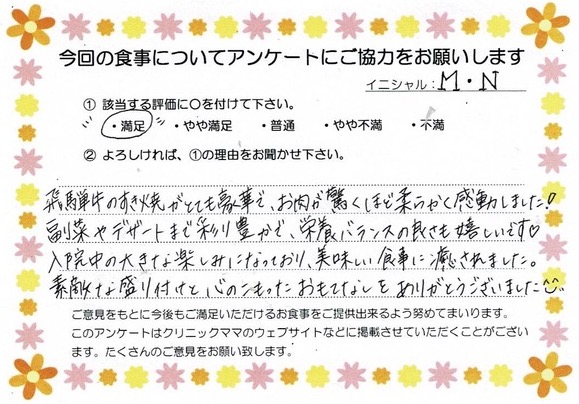 今回の食事についてアンケートにご協力をお願いします
イニシャル：M・N
① 該当する評価に○を付けて下さい。
・満足 ・やや満足 ・普通 ・やや不満 ・不満
② よろしければ、①の理由をお聞かせ下さい。
飛騨牛のすき焼がとても豪華で、お肉が驚くほど柔らかく感動しました！
副菜やデザートまで彩り豊かで、栄養バランスの良さも嬉しいです♡
入院中の大きな楽しみになっており、美味しい食事に癒されました。
素敵な盛り付けと心のこもったおもてなしをありがとうございました
ご意見をもとに今後もご満足いただけるお食事をご提供出来るよう努めてまいります。
このアンケートはクリニックママのウェブサイトなどに掲載させていただくことがござい
ます。たくさんのご意見をお願い致します。